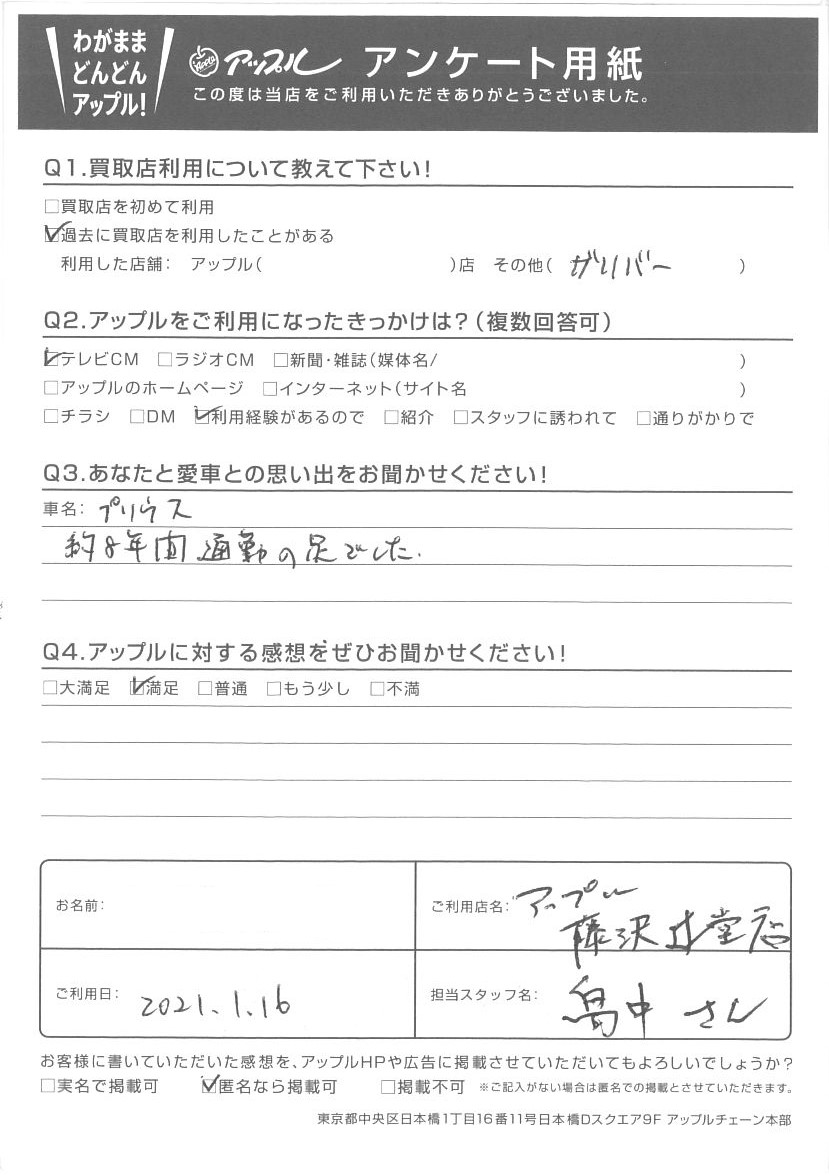 わがまま
どんどん
アップル!
アップル アンケート用紙
この度は当店をご利用いただきありがとうございました。
Q1.買取店利用について教えて下さい!
□買取店を初めて利用
☑過去に買取店を利用したことがある
利用した店舗: アップル( )店 その他( ガリバー )
Q2.アップルをご利用になったきっかけは?(複数回答可)
☑テレビCM □ラジオCM □新聞・雑誌(媒体名/ )
□アップルのホームページ □インターネット(サイト名 )
□チラシ □DM ☑利用経験があるので □紹介 □スタッフに誘われて □通りがかりで
Q3.あなたと愛車との思い出をお聞かせください!
車名: プリウス
約8年間通勤の足でした.
Q4.アップルに対する感想をぜひお聞かせください!
□大満足 ☑満足 □普通 □もう少し □不満
お名前:
ご利用店名: アップル
藤沢辻堂店
ご利用日: 2021.1.16
担当スタッフ名: 畠中さん
お客様に書いていただいた感想を、アップルHPや広告に掲載させていただいてもよろしいでしょうか?
□実名で掲載可 ☑匿名なら掲載可 □掲載不可 ※ご記入がない場合は匿名での掲載とさせていただきます。
東京都中央区日本橋1丁目16番11号日本橋Dスクエア9F アップルチェーン本部